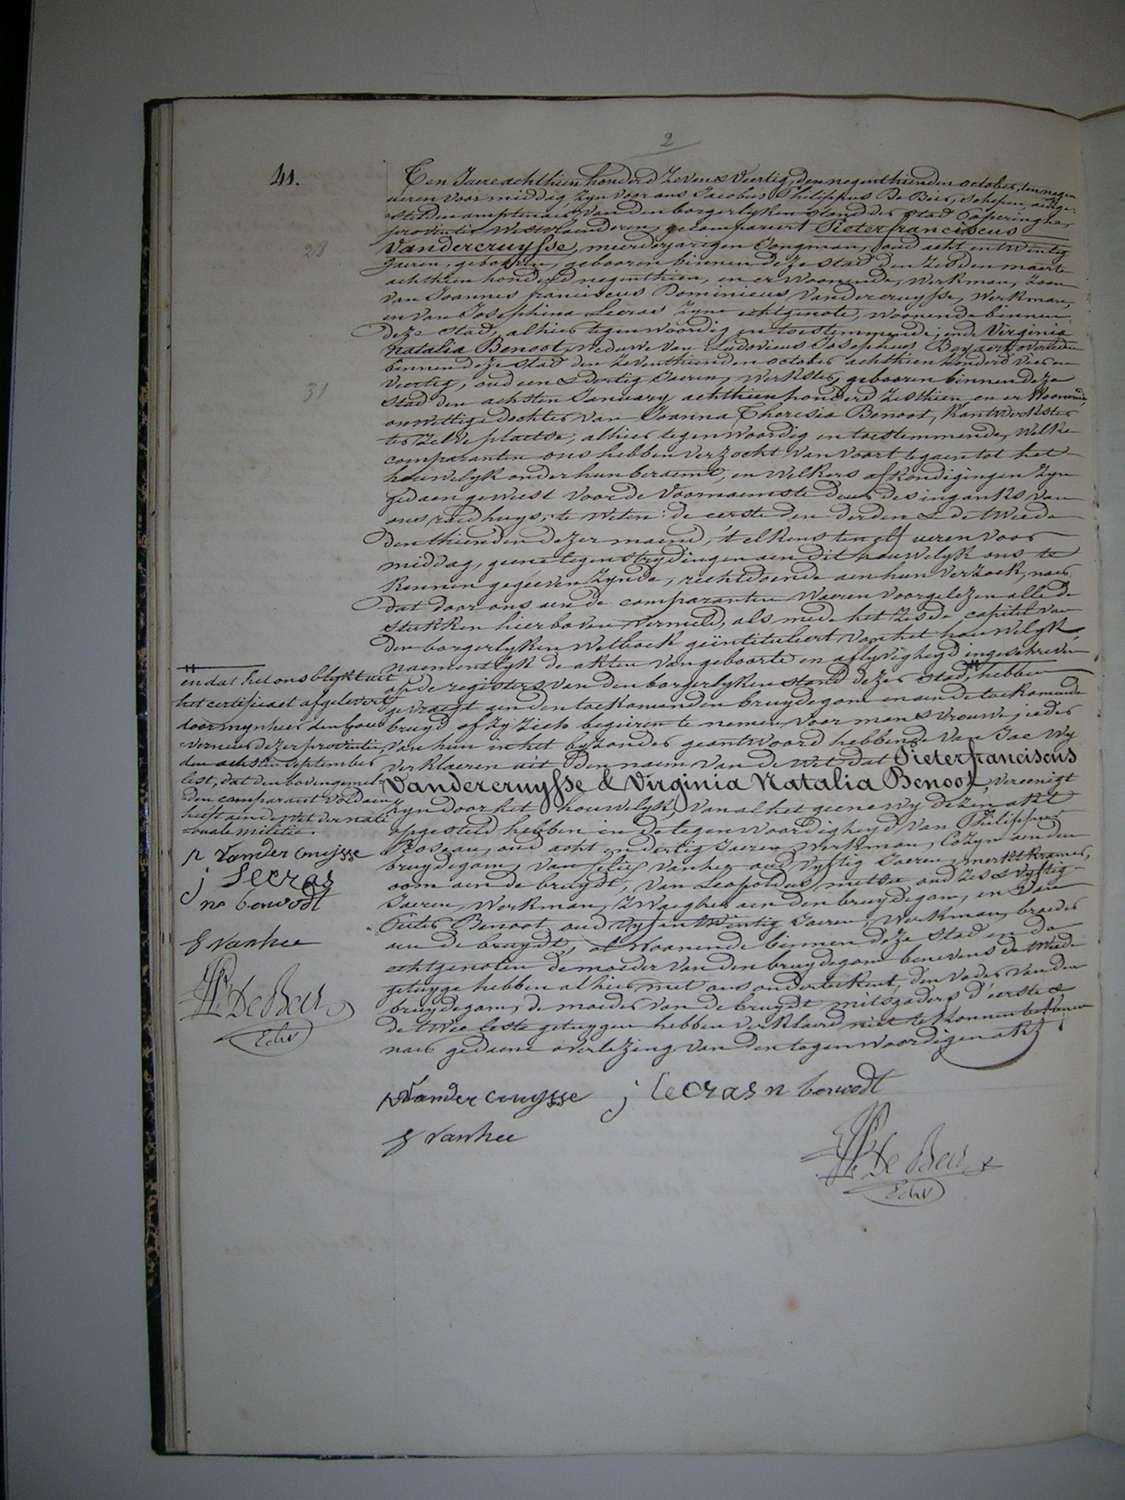 2
41.
Ten Jaere achthien honderd Zeven & Veertig, den negenthienden october, ten negen
ueren voor middag, Zyn voor ons Jacobus Philippus De Beir, Schepen, afge-
stelden amptenaer van den borgerlyken stand der stad Poperinghe,
provintie Westvlaenderen, gecompareert Pieter franciscus
28
Vandercruysse, meerderjarigen Jongman, oud acht en twintig
Jaeren, gebooren, gebooren binnen deze stad den Zesden maerte
achthien honderd negenthien, en er Woonende, Werkman, Zoon
van Joannes franciscus Dominicus Vandercruysse, Werkman,
en van Josephina Lecras Zyne echtgenote, Woonende binnen
deze stad, alhier tegenwoordig en toestemmende; ende Virginia
Natalia Benoot, Weduwe van Ludovicus Josephus overleden
binnen deze stad den Zeventhienden october achthien honderd vier en
31
Veertig, oud een & dertig Jaeren, Werkster, gebooren binnen deze
stad den achsten January achthien honderd Zesthien, en er Woonende,
onwettige dochter van Joanna Theresia Benoot, Kantwerkster
ter Zelve plaetse, alhier tegenwoordig en toestemmende, Welke
comparanten ons hebben verzocht van voort tegaen tot het
houwelyk onder hun beraemt, en Welkers afkondigingen Zyn
gedaen geweest voor de voornaemste deur des inganks van
ons raedhuys, te Weten: de eerste den derden & de tweede
den thienden dezer maend, 't elkens ten elf ueren voor
middag, geene tegenstrydingen aen dit houwelyk ons te
Kennen gegeven Zynde, rechtdoende aen hun verzoek, naer
dat door ons aen de comparanten Waeren voorgelezen alle de
stukken hier boven vermeld, als mede het Zesde capitel van
den borgerlyken Wetboek geïntituleert van het houwelyk
naementlyk de akten van geboorte en aflyvigheyd ingeschreven
op de registers van den borgerlyken stand dezer stad, hebben
gevraegt aen den toekomenden bruydegom en aen de toekomende
bruyd of Zy Zich begeiren te nemen voor man & vrouwe; ieder
van hun in het byzonder geantwoord hebbende van Jae Wy
verklaeren uit Den naem van de Wet, dat Pieter franciscus
Vandercruysse & Virginia Natalia Benoot, vereenigt
Zyn door het houwelyk, van al het geene Wy dezen akt
opgesteld hebben in de tegenwoordigheyd van Philippus
oud acht en dertig Jaeren, Werkman, Cozyn aen den
bruydegom, van Vanhee oud vyftig Jaeren, merktkramer,
oom aen de bruydt, van Leopoldus oud Zes & vyftig
Jaeren, Werkman, Zwaegher aen den bruydegom, en van
Pieter Benoot, oud vyf en twintig Jaeren, Werkman, broeder
aen de bruydt, al Woonende binnen deze stad en de
echtgenoten de moeder van den bruydegom benevens de tweede
getuyge hebben alhier met ons onderteekent, den vader van den
bruydegom, de moeder van de bruydt mitsgaders d'eerste &
de twee leste getuygen hebben verklaerd niet te Konnen teekenen
naer gedaene overlezing van den tegenwoordigen akt.
en dat het ons blykt uit
het certificaet afgelevert
door mynheer den gou-
verneur dezer provintie
den achsten september
lest, dat den bovengemel-
den comparant voldaen
heeft aen de Wet der natio-
nale militie.
p vander cruijsse
j lecras
n benoodt
Vanhee
De Beir
Echv
p vander cruysse j lecras n benoodt
Vanhee
De Beir
Echv